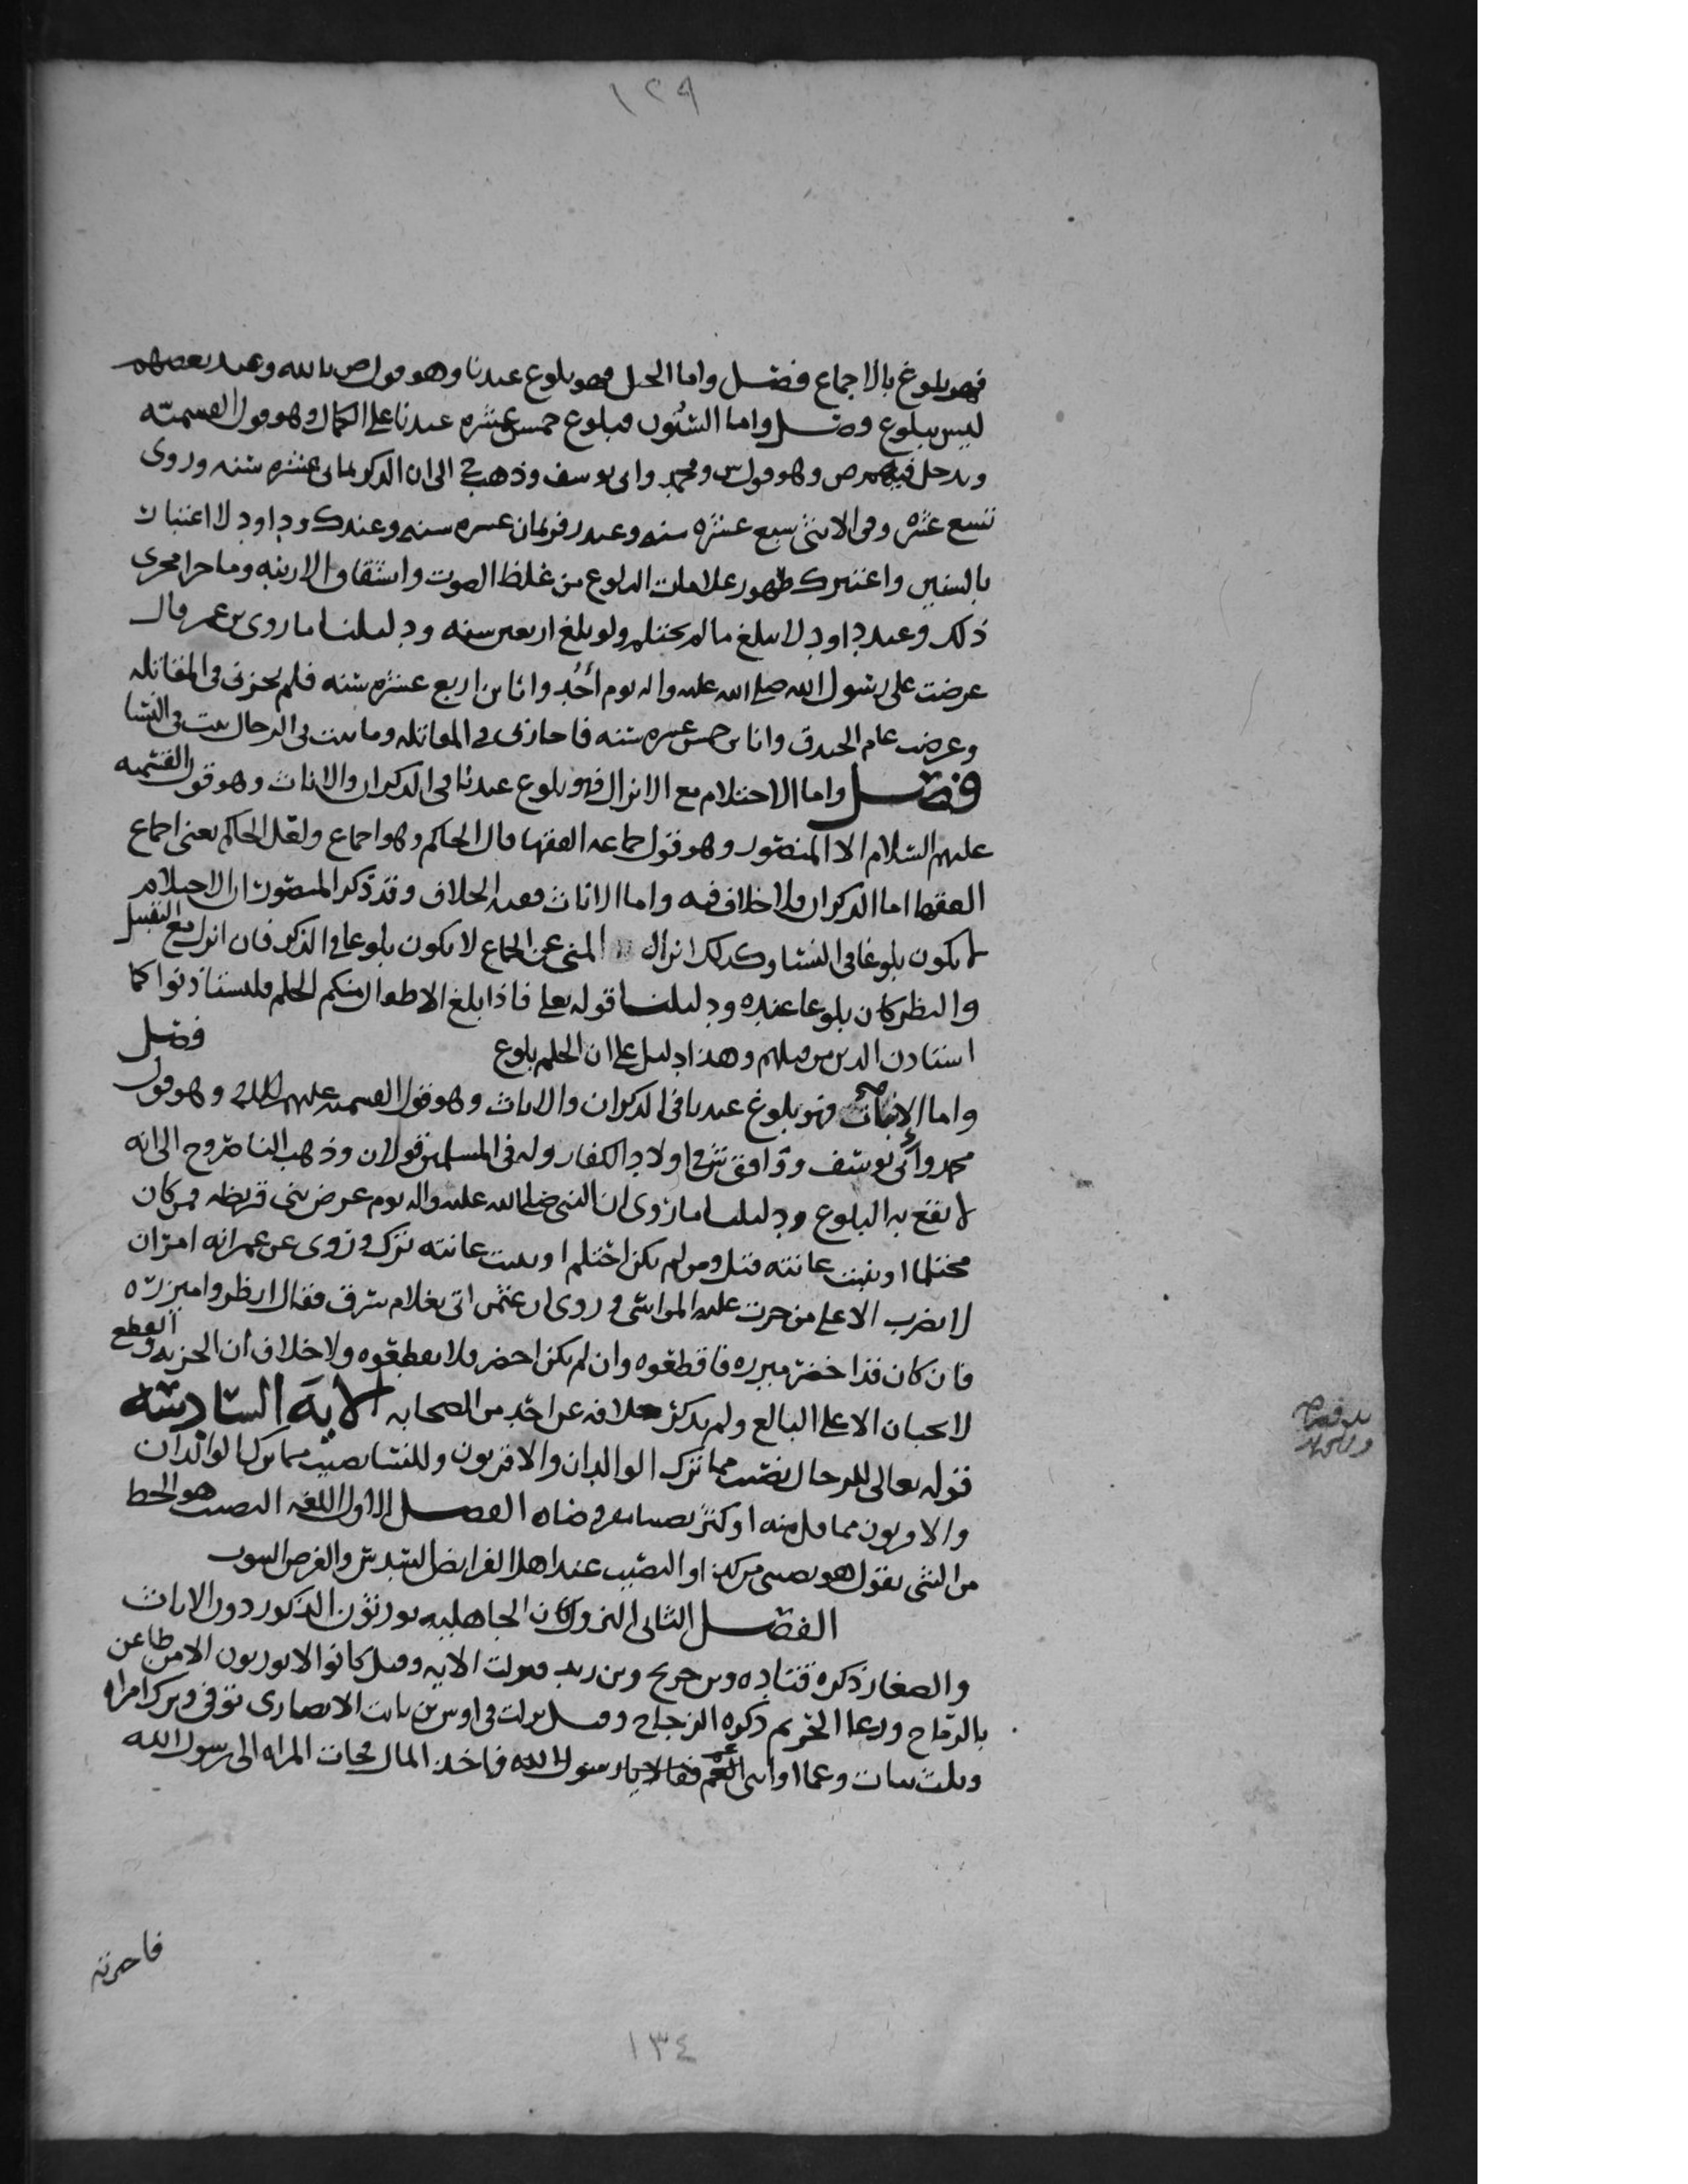 ١٢٩
فهو بلوغ بالاجماع فصل واما الحبل فهو بلوغ عندنا وهو قول ص بالله وعند بعضهم
ليس ببلوغ فصل واما السنون فبلوغ خمس عشره عندنا على الكمال وهو قول القسميه
ويدخل فيهم ص وهو قول س ومحمد وابى يوسف وذهب ح الى ان الذكر بثمانى عشره سنه وروى
تسع عشره وفى الانثى سبع عشره سنه وعند زفر ثمان عشره سنه وعند ك وداود لا اعتبار
بالسنين واعتبر ك ظهور علامات البلوغ من غلظ الصوت وانشقاق الارنبه وما جرا مجرى
ذلك وعند داود لا يبلغ ما لم يحتلم ولو بلغ اربعين سنه ودليلنا ما روى بن عمر قال
عرضت على رسول الله صلى الله عليه واله يوم أُحُد وانا بن اربع عشره سنه فلم يجزنى فى المقاتله
وعرضت عام الخندق وانا بن خمس عشره سنه فاجازنى فى المقاتله وما ثبت فى الرجال ثبت فى النسا
فصل واما الاحتلام مع الانزال فهو بلوغ عندنا فى الذكران والاناث وهو قول القسميه
عليهم السلام الا المنصور وهو قول جماعه الفقها قال الحاكم وهو اجماع ولعل الحاكم يعنى اجماع
الفقها اما الذكران فلا خلاف فيه واما الاناث ففيه الخلاف وقد ذكر المنصور ان الاحتلام
لا يكون بلوغا فى النسا وكذلك انزال المنى عن الجماع لا يكون بلوغا فى الذكر فان انزل مع التقبيل
والنظر كان بلوغا عنده ودليلنا قوله تعلى فاذا بلغ الاطفال منكم الحلم فليستاذنوا كما
استاذن الذين من قبلهم وهذا دليل على ان الحلم بلوغ فصل
واما الانبات فهو بلوغ عندنا فى الذكران والاناث وهو قول القسميه عليهم السلام وهو قول
محمد وأبى يوسف ووافق ش فى اولاد الكفار وله فى المسلمين قولان وذهب الناصر وح الى انه
لا يقع به البلوغ ودليلنا ما روى ان النبى صلى الله عليه واله يوم عرض بنى قريظه فمن كان
محتلما او نبتت عانته قتل ومن لم يكن احتلم او نبتت عانته ترك وروى عن عمر انه امر ان
لا يضرب الا على من جرت عليه المواسى وروى ان عثمن اتى بغلام سرق فقال انظروا ميزره
فان كان قد اخضر ميزره فاقطعوه وان لم يكن اخضر فلا تقطعوه ولا خلاف أن الجزيه والقطع
لا يجبان الا على البالغ ولم يذكر خلافه عن احد من الصحابه الايه السادسه
قوله تعالى للرجال نصيب مما ترك الوالدان والاقربون وللنسا نصيب مما ترك الوالدان
والاقربون مما قل منه او كثر نصيبا مفروضا ه الفصل الاول اللغه النصيب هو الحظ
من الشى يقول هو نصيبى من كذا والنصيب عند اهل الفرايض السدس والفرض
الفصل الثانى النزول كان الجاهليه يورثون الذكور دون الاناث
والصغار ذكره قتاده وبن جريج وبن زيد فنزلت الايه وقيل كانوا لا يورثون الا من طاعن
بالرماح ودعا الحريم ذكره الزجاج وقيل نزلت فى اوس بن ثابت الانصارى توفى وترك امراه
وثلث بنات وعما او ابنى عم فقالا يا رسول الله فاخذ المال فجات المراه الى رسول الله
فاخبرته
١٣٤